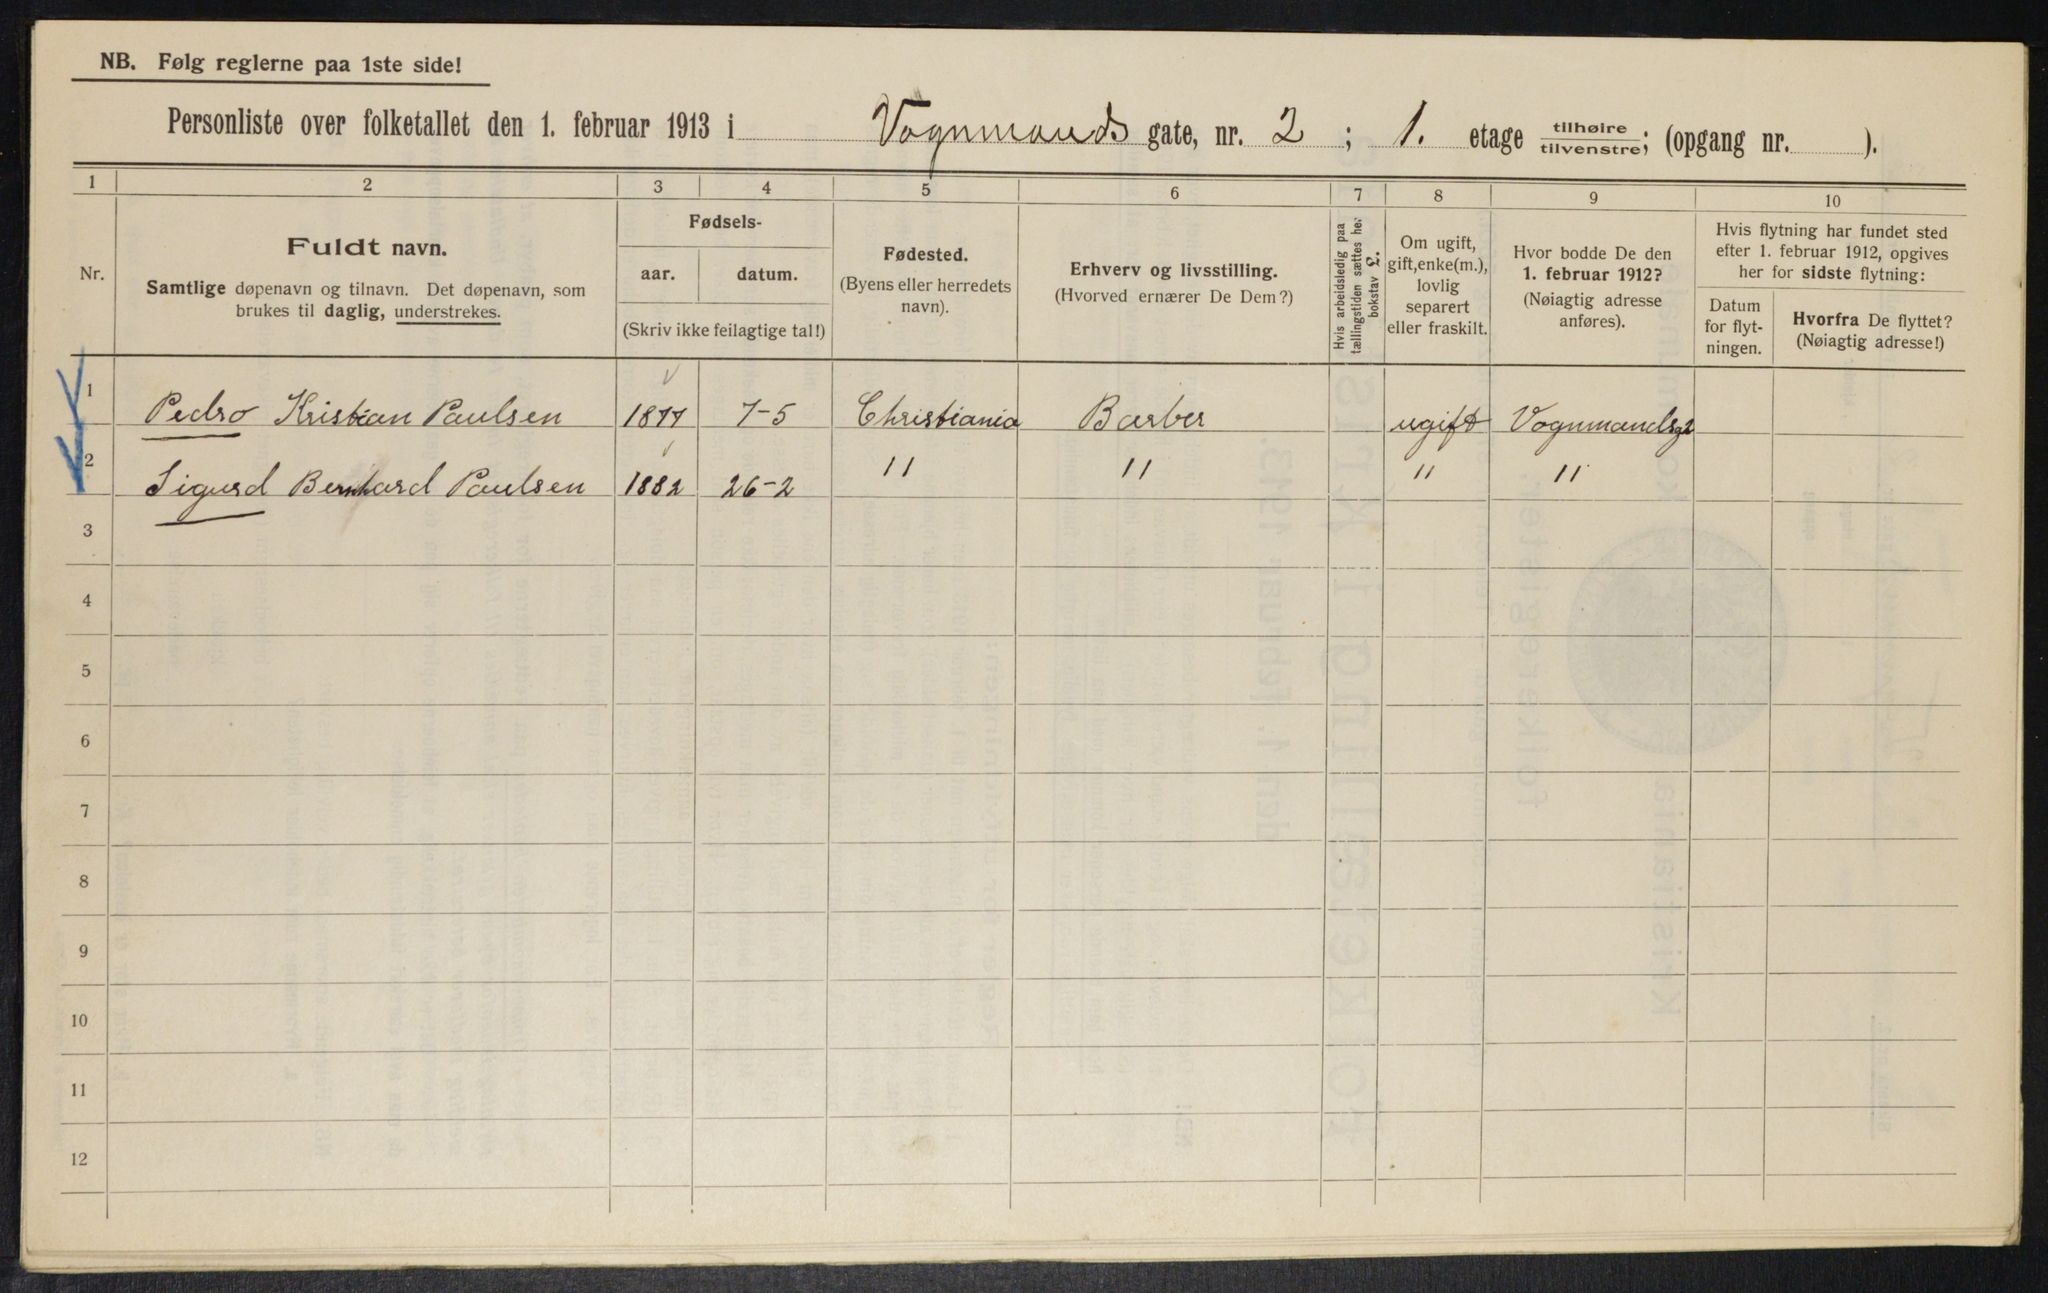 NB. Følg reglerne paa 1ste side!
Personliste over folketallet den 1. februar 1913 i Vognmands gate, nr. 2 ; 1. etage tilhøire tilvenstre; (opgang nr. ).
1 2 3 4 5 6 7 8 9 10
Nr.
Fuldt navn.
Samtlige døpenavn og tilnavn. Det døpenavn, som
brukes til daglig, understrekes.
Fødsels-
aar. datum.
(Skriv ikke feilagtige tal!)
Fødested.
(Byens eller herredets
navn).
Erhverv og livsstilling.
(Hvorved ernærer De Dem?)
Hvis arbeidsledig paa
tællingstiden sættes her
bokstav L.
Om ugift,
gift, enke(m.),
lovlig
separert
eller fraskilt.
Hvor bodde De den
1. februar 1912?
(Nøiagtig adresse
anføres).
Hvis flytning har fundet sted
efter 1. februar 1912, opgives
her for sidste flytning:
Datum
for flyt-
ningen.
Hvorfra De flyttet?
(Nøiagtig adresse!)
1 Pedro Kristian Paulsen 1877 7-5 Christiania Barber ugift Vognmandsg 2
2 Sigurd Bernhard Paulsen 1882 26-2 " " " "
3
4
5
6
7
8
9
10
11
12